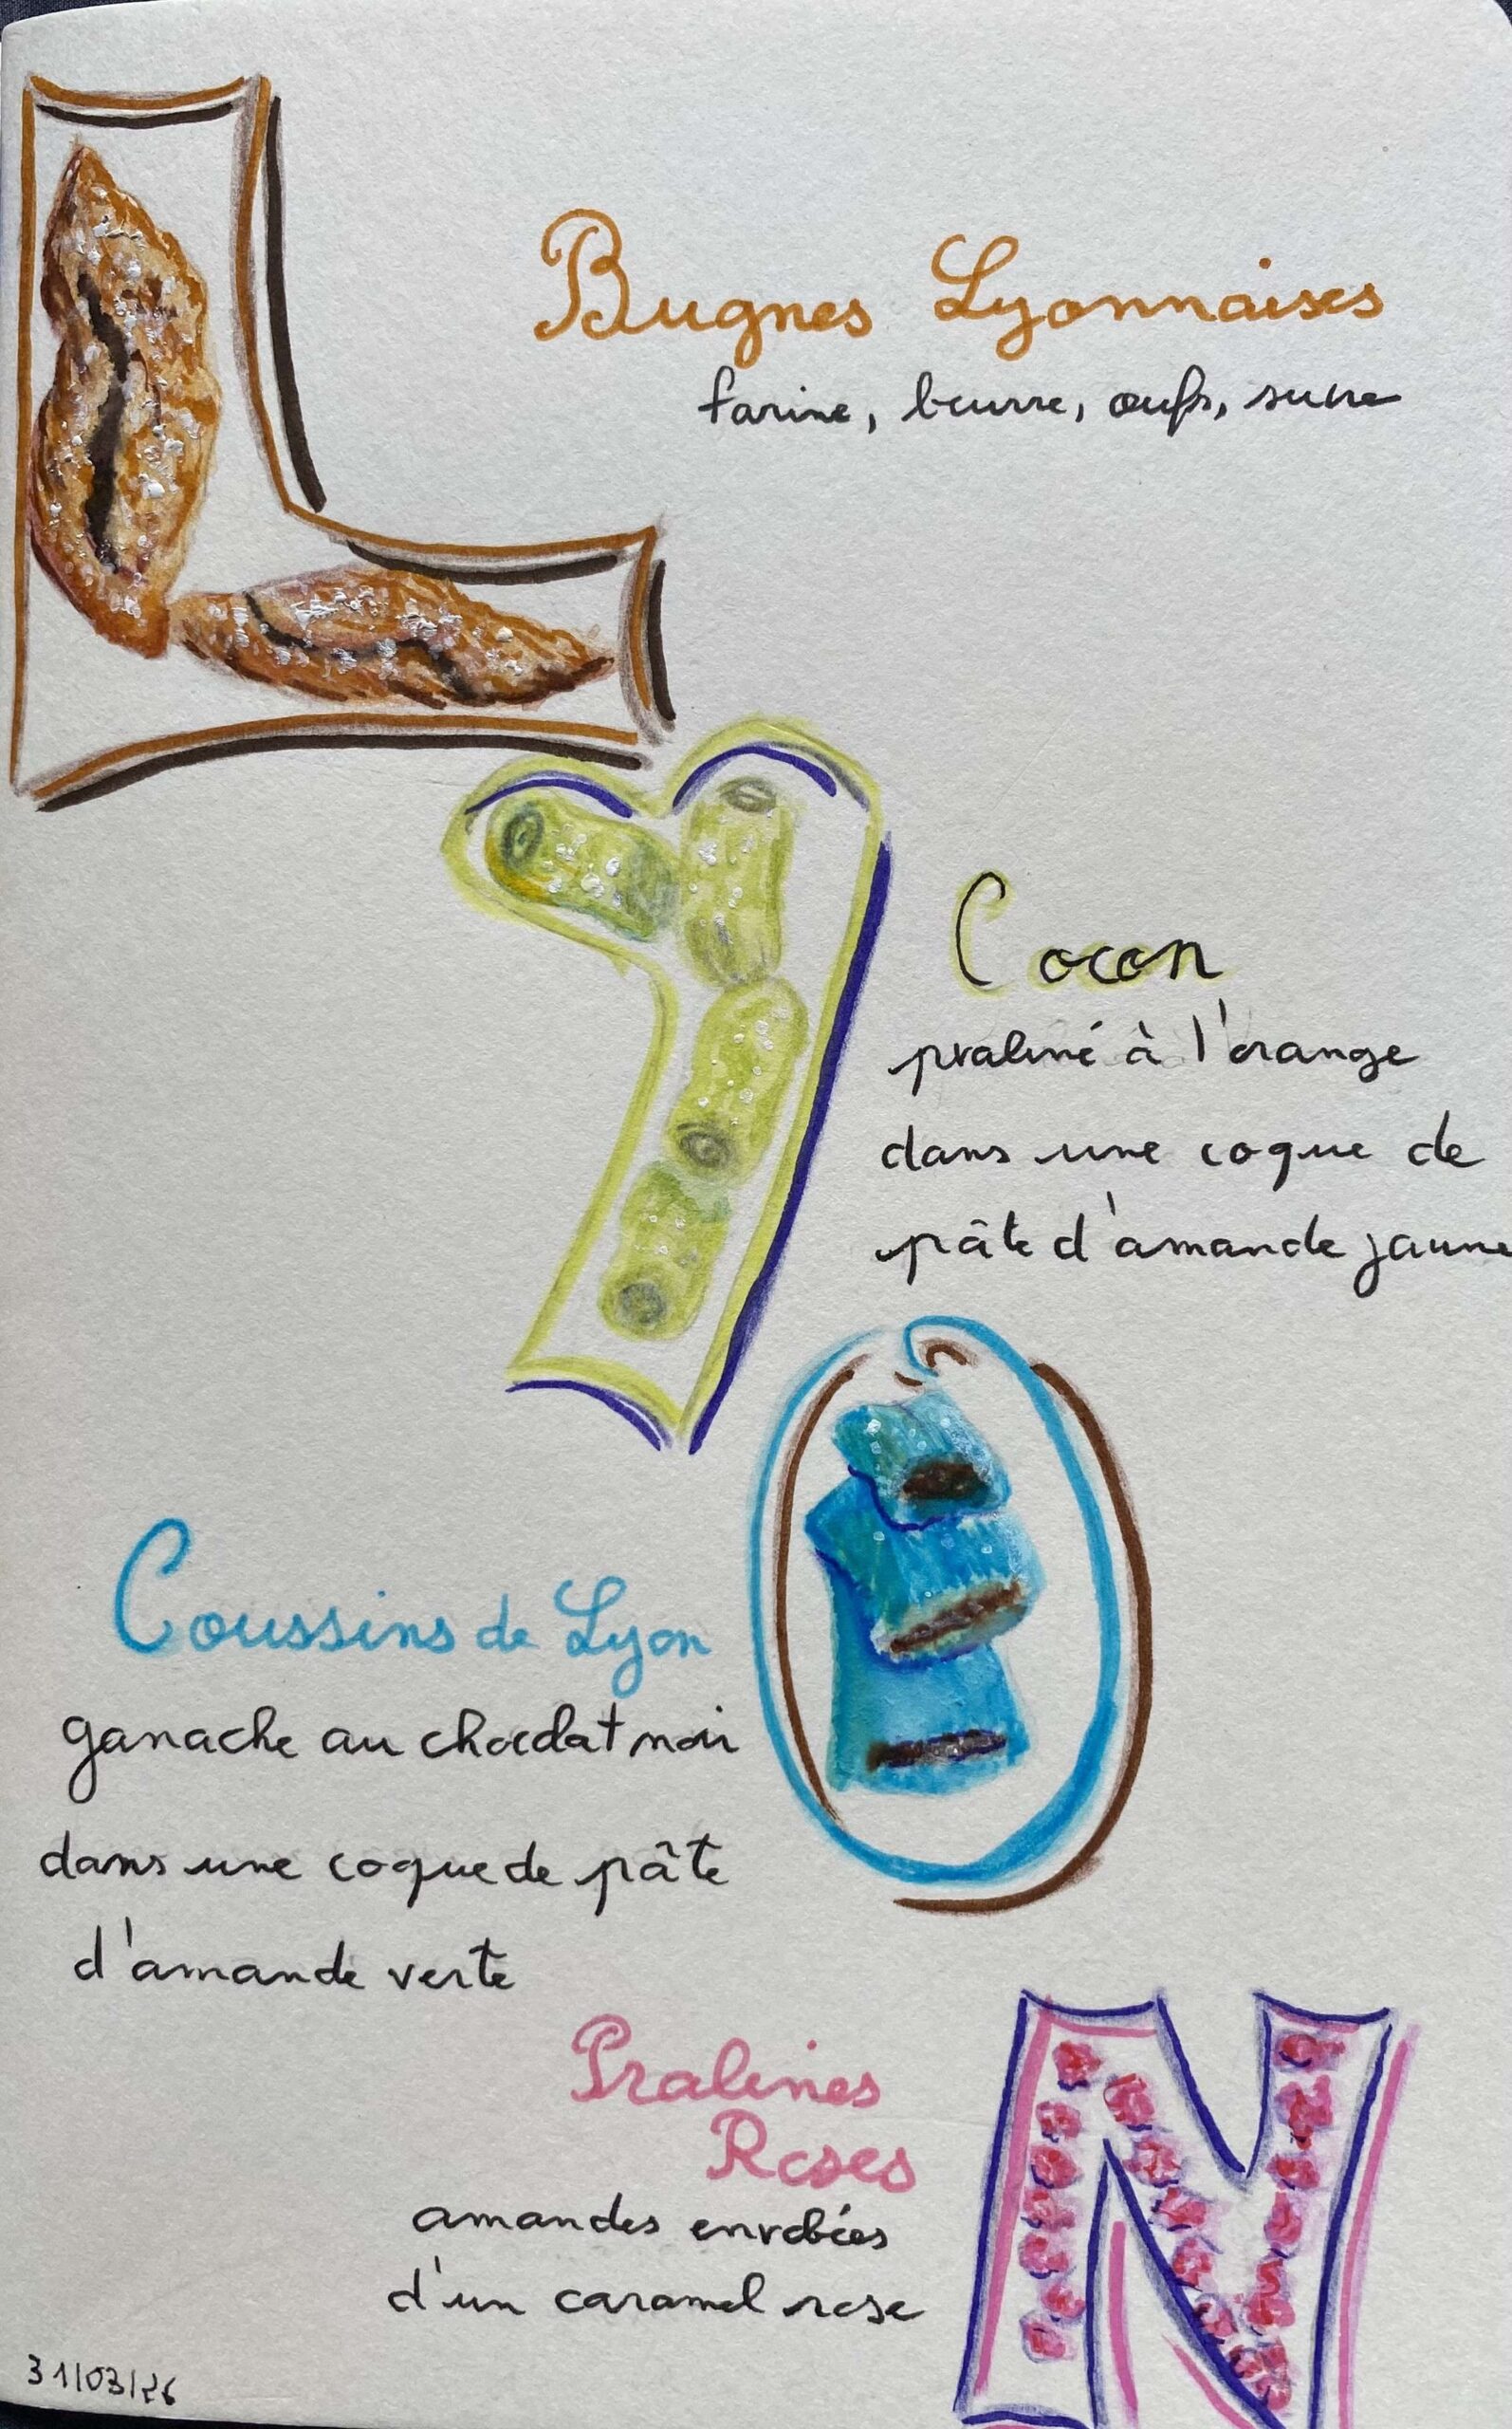 L
Bugnes Lyonnaises
farine, beurre, oeufs, sucre
Y
Cocon
praliné à l'orange
dans une coque de
pâte d'amande jaune
O
Coussins de Lyon
ganache au chocolat noir
dans une coque de pâte
d'amande verte
N
Pralines
Roses
amandes enrobées
d'un caramel rose
31/03/26